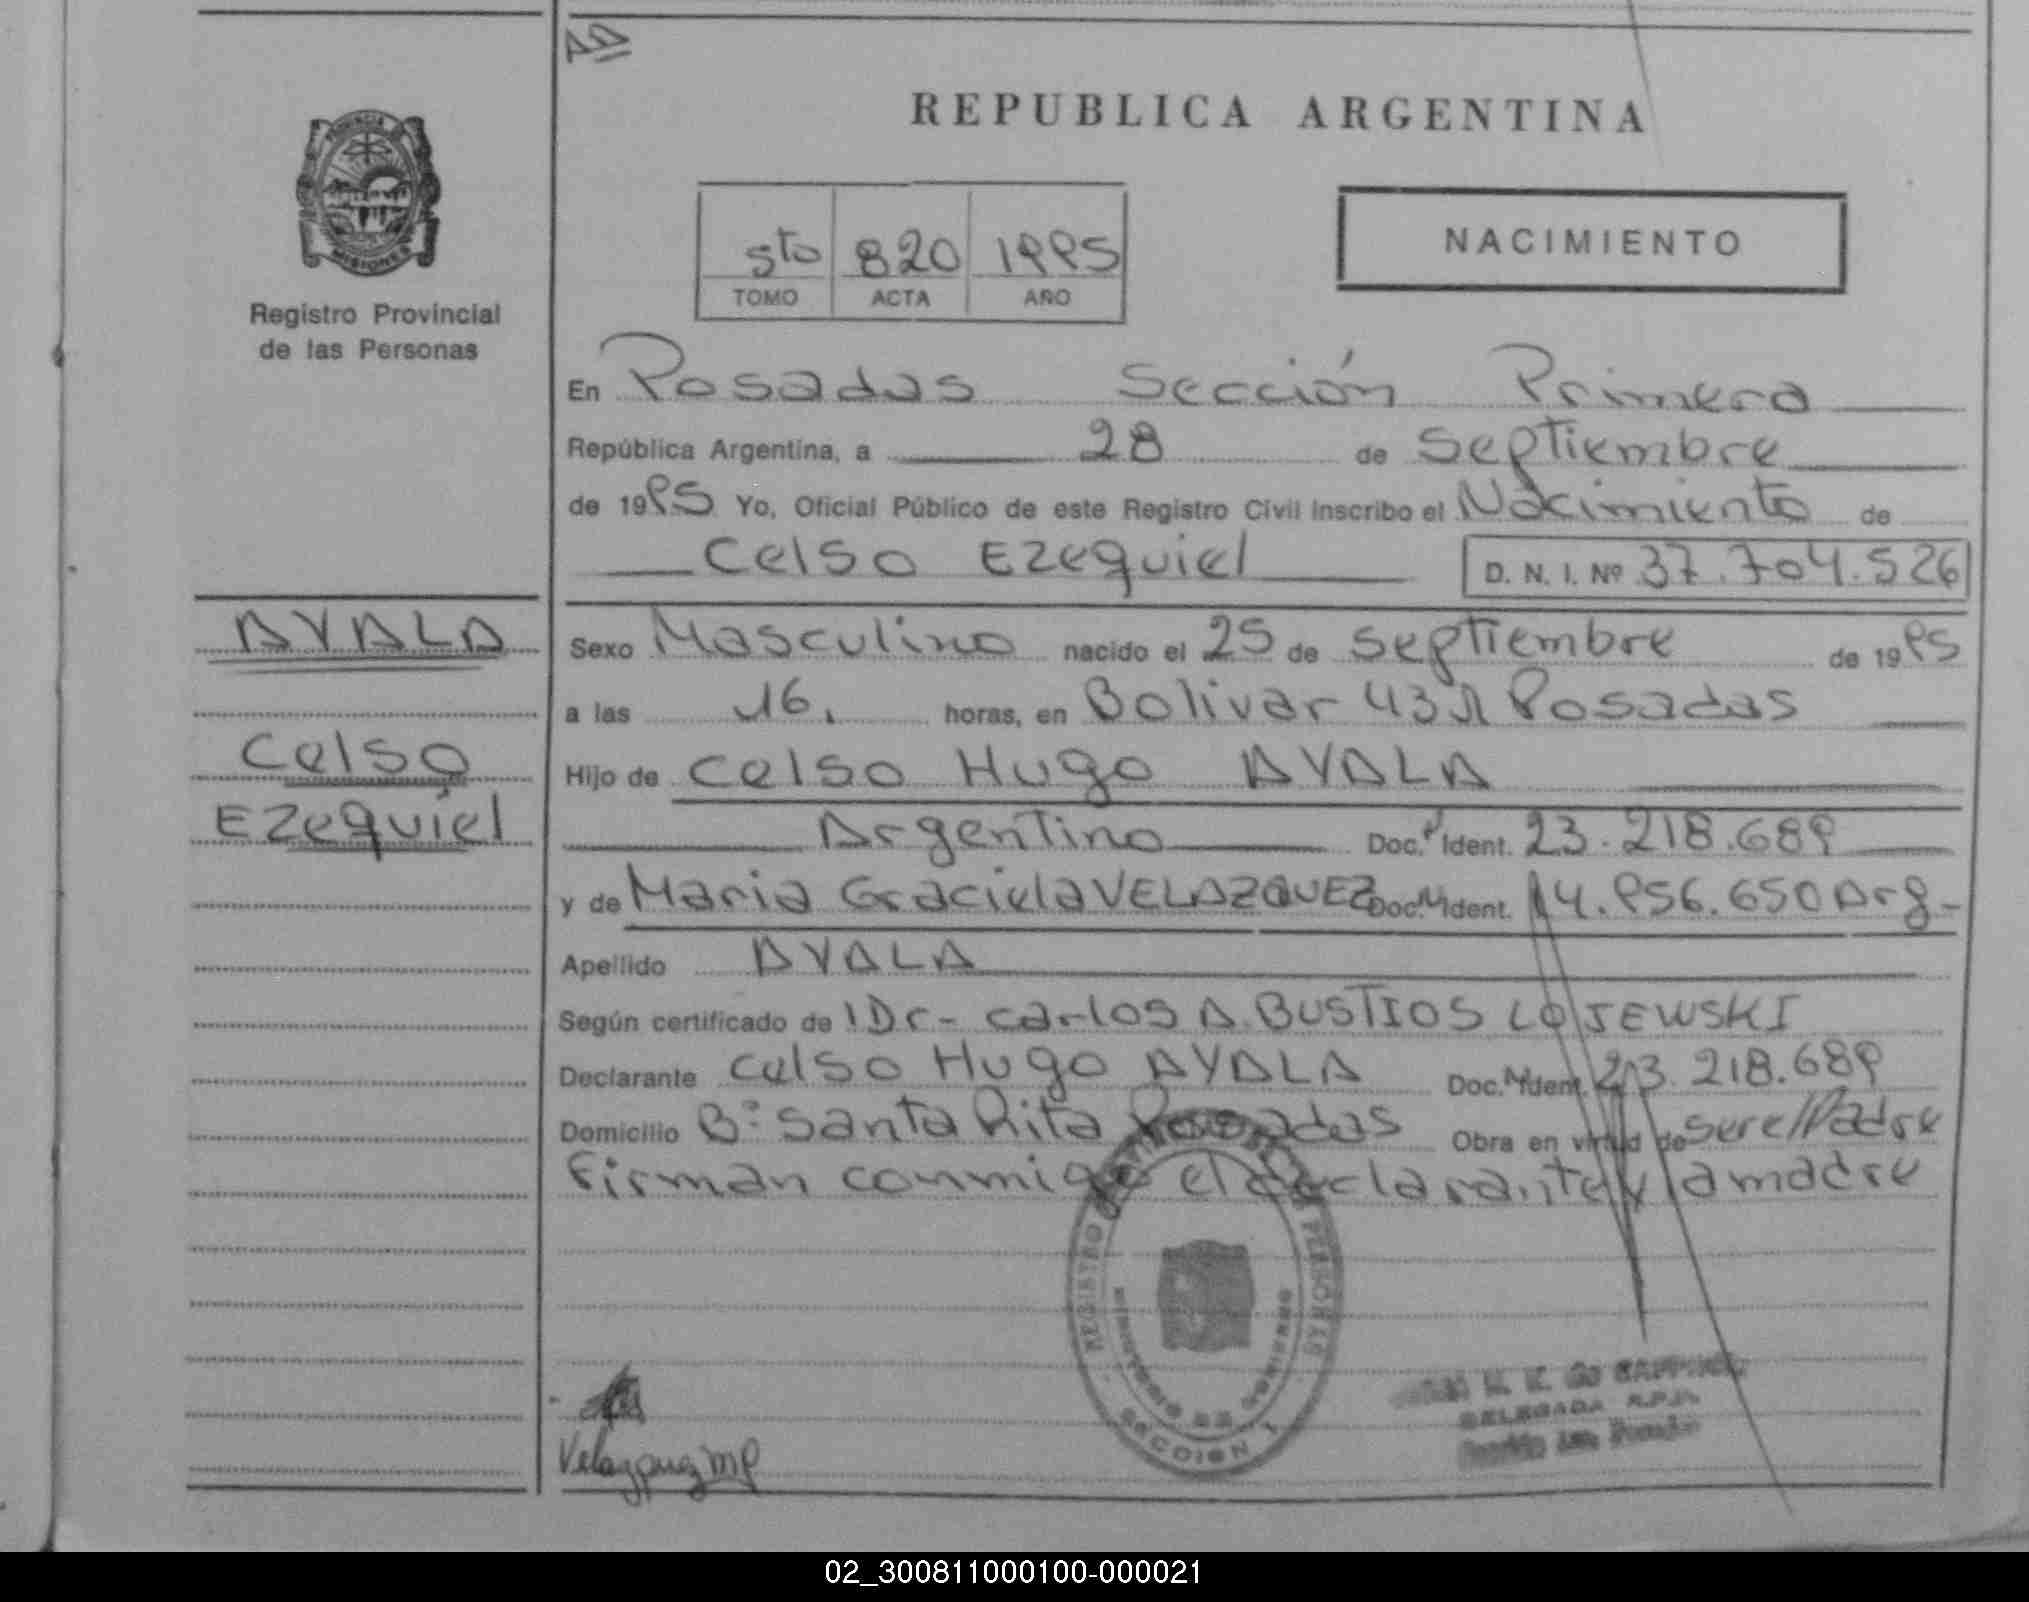 AA
PROVINCIA DE
MISIONES
Registro Provincial
de las Personas
AYALA
Celso
Ezequiel
REPUBLICA ARGENTINA
5to 820 1995
TOMO ACTA AÑO
NACIMIENTO
En Posadas Sección Primera
República Argentina, a 28 de Septiembre
de 1995 Yo, Oficial Público de este Registro Civil inscribo el Nacimiento de
Celso Ezequiel D. N. I. Nº 37.704.526
Sexo Masculino nacido el 25 de Septiembre de 1995
a las 16. horas, en Bolivar Posadas
Hijo de Celso Hugo AYALA
Argentino Doc. Ident. 23.218.689
y de Maria Graciela VELAZQUEZ Doc. Ident. 14.956.650 Arg-
Apellido AYALA
Según certificado de l Dr- Carlos A. BUSTIOS LOJEWSKI
Declarante Celso Hugo AYALA Doc. Ident. 23.218.689
Domicilio Bº Santa Rita Posadas Obra en virtud de ser el Padre
Firman conmigo el declarante y la madre
REGISTRO PERSONAS
MINISTERIO DE GOBIERNO
SECCION 1
DELEGADA R.P.P.
Velazquez MG
02_300811000100-000021